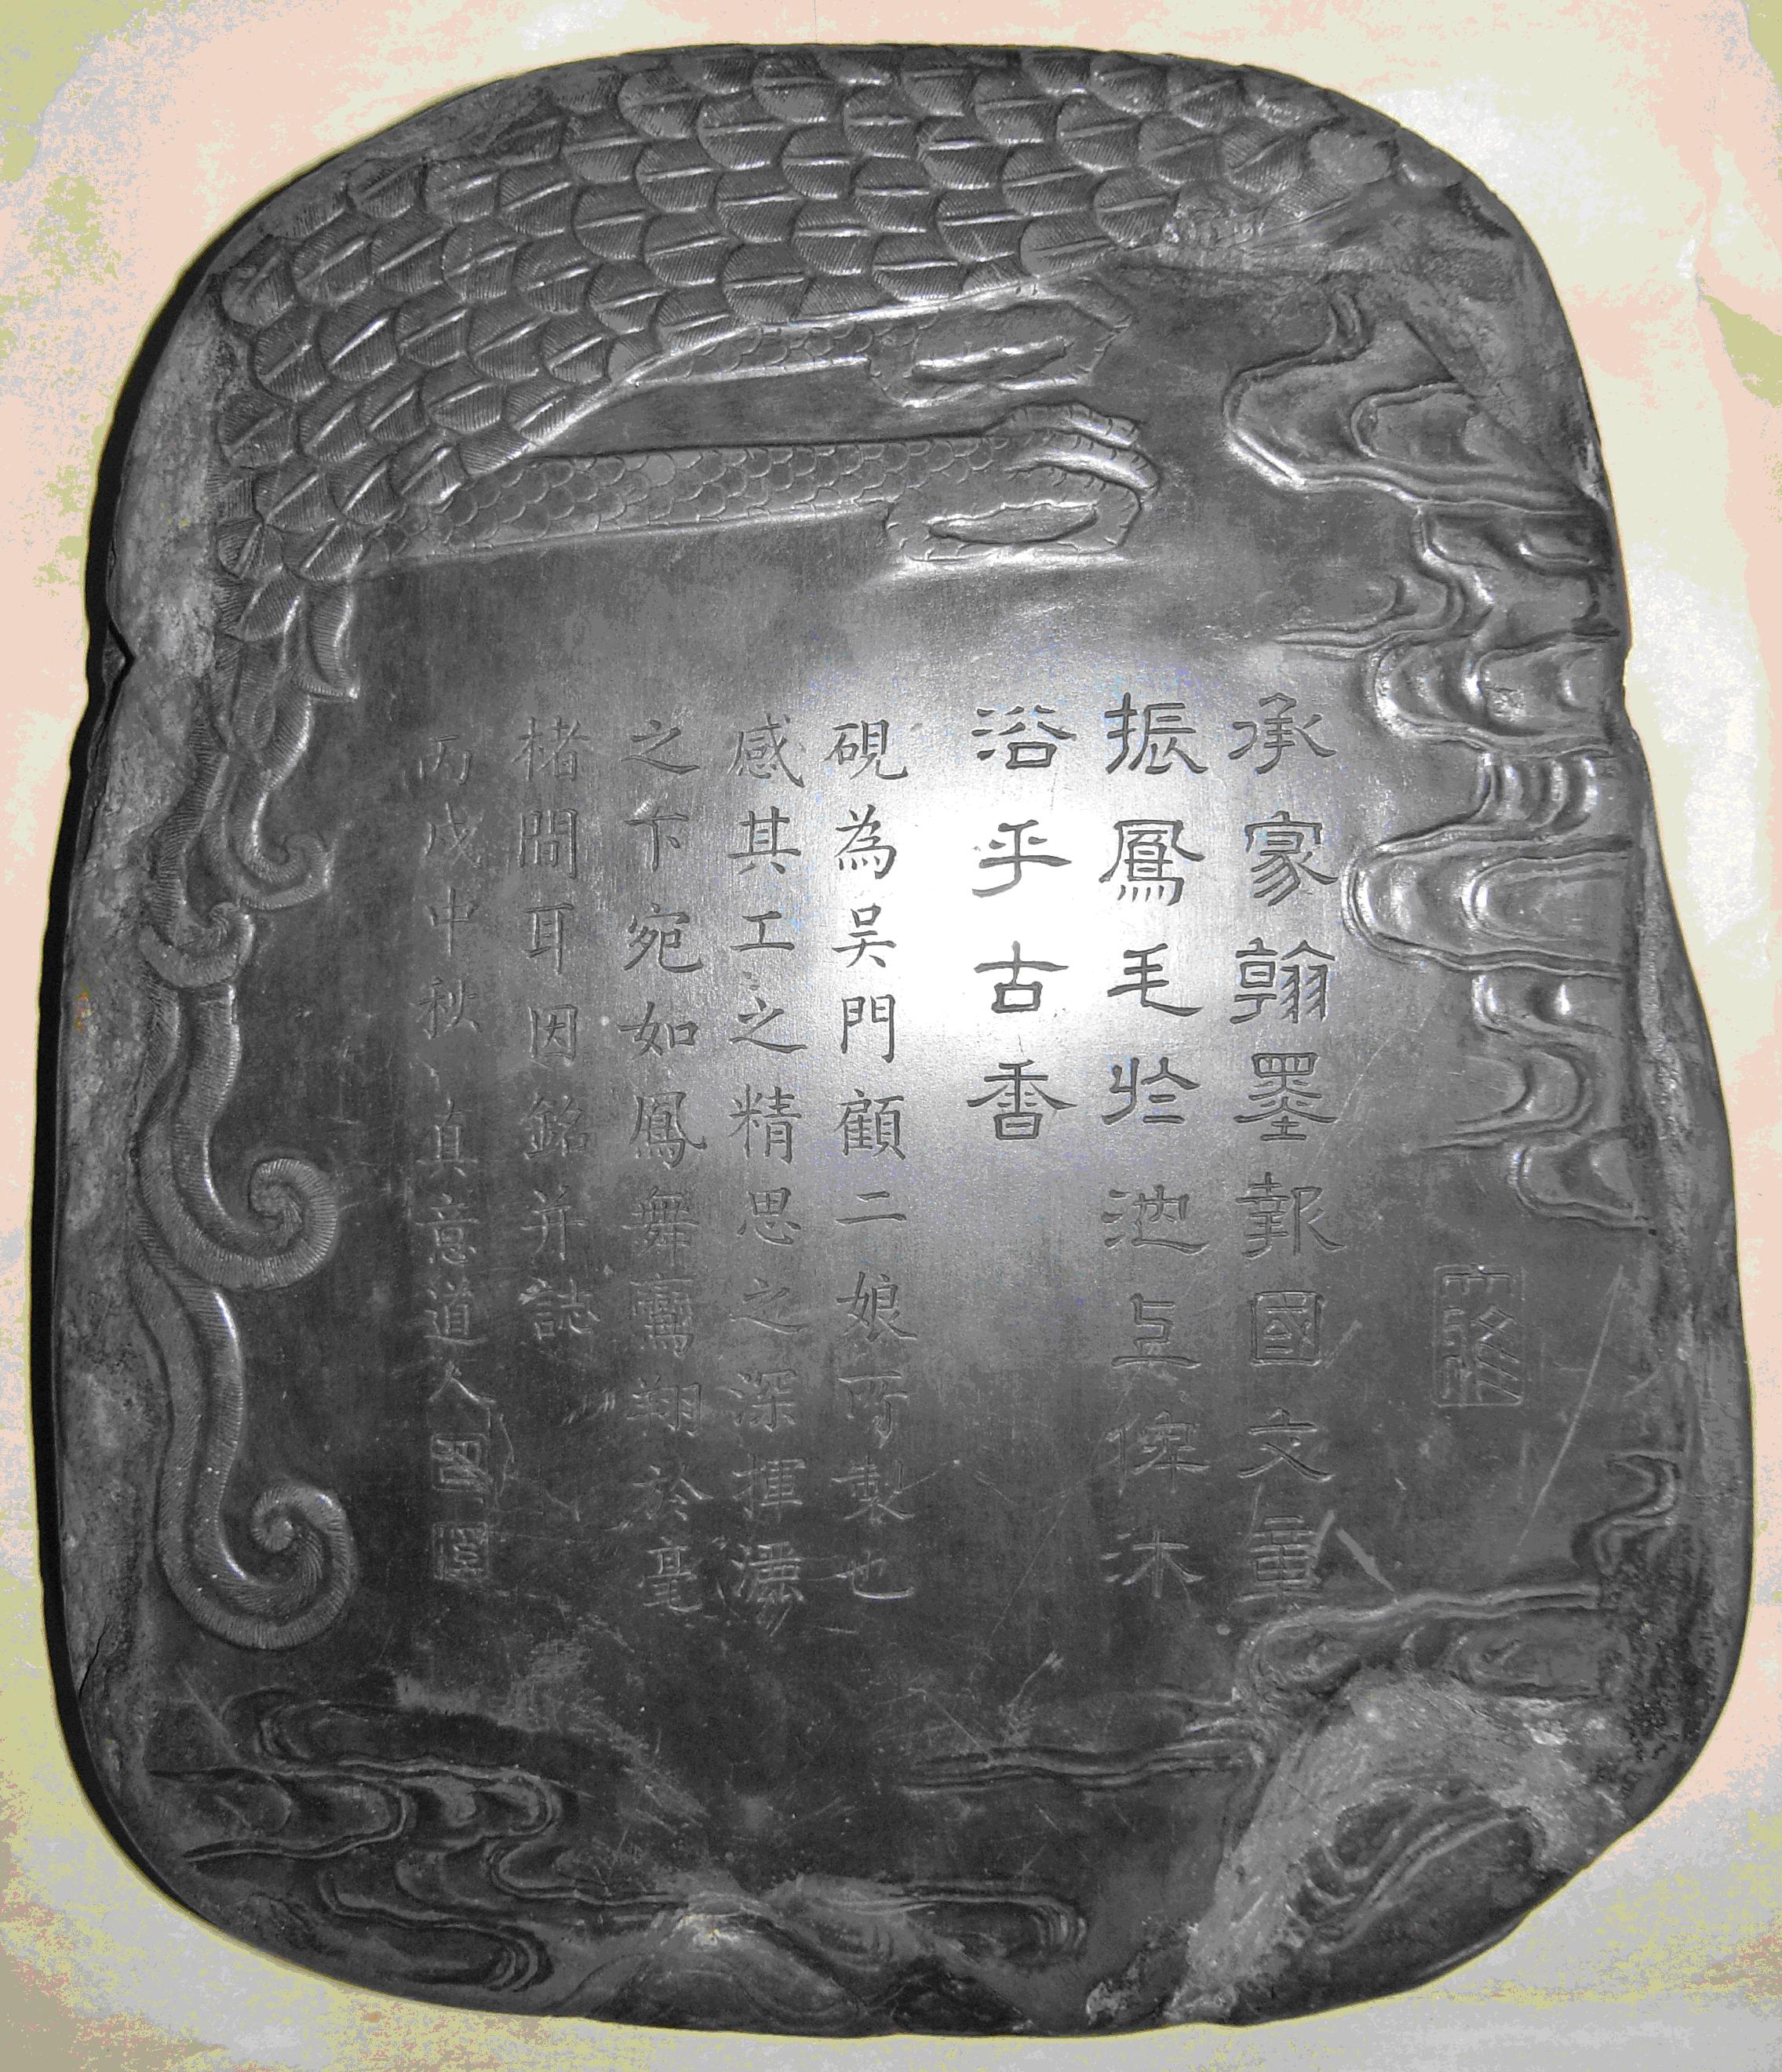 承家翰墨報國文章
振鳳毛於池上俾沐
浴乎古香
硯為吴門顧二娘所製也
感其工之精思之深揮灑
之下宛如鳳舞鸞翔於毫
楮間耳因銘并誌
丙戌中秋 真意道人